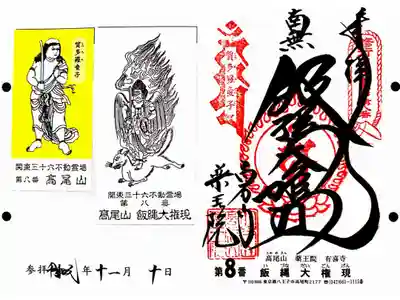 奉拝
南無
飯縄大権現
高尾山
薬王院
賀多羅童子
関東三十六不動霊場
第八番 高尾山
関東三十六不動霊場
第八番
高尾山 飯縄大権現
参拝 年 十一月 十日
高尾山 薬王院 有喜寺
第8番 飯縄大権現
〒193-8686 東京都八王子市高尾町2177 ☎(042)661-1115